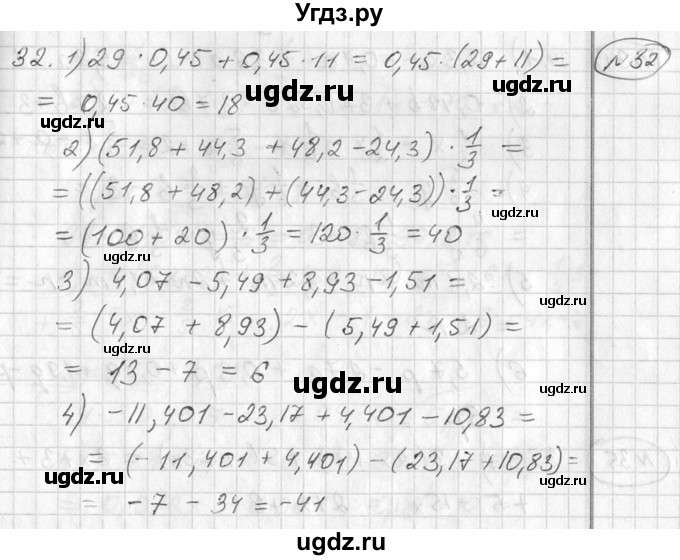 Угдз.ру
32. 1) 29 · 0,45 + 0,45 · 11 = 0,45 · (29 + 11) =
№32
= 0,45 · 40 = 18
ugdz.ru
ugdz.ru
2) (51,8 + 44,3 + 48,2 - 24,3) · 1/3 =
ugdz.ru
= ((51,8 + 48,2) + (44,3 - 24,3)) · 1/3 =
= (100 + 20) · 1/3 = 120 · 1/3 = 40
ugdz.ru
ugdz.ru
3) 4,07 - 5,49 + 8,93 - 1,51 =
ugdz.ru
= (4,07 + 8,93) - (5,49 + 1,51) =
ugdz.ru
= 13 - 7 = 6
ugdz.ru
ugdz.ru
4) - 11,401 - 23,17 + 4,401 - 10,83 =
= (- 11,401 + 4,401) - (23,17 + 10,83) =
ugdz.ru
ugdz.ru
= - 7 - 34 = - 41
ugdz.ru